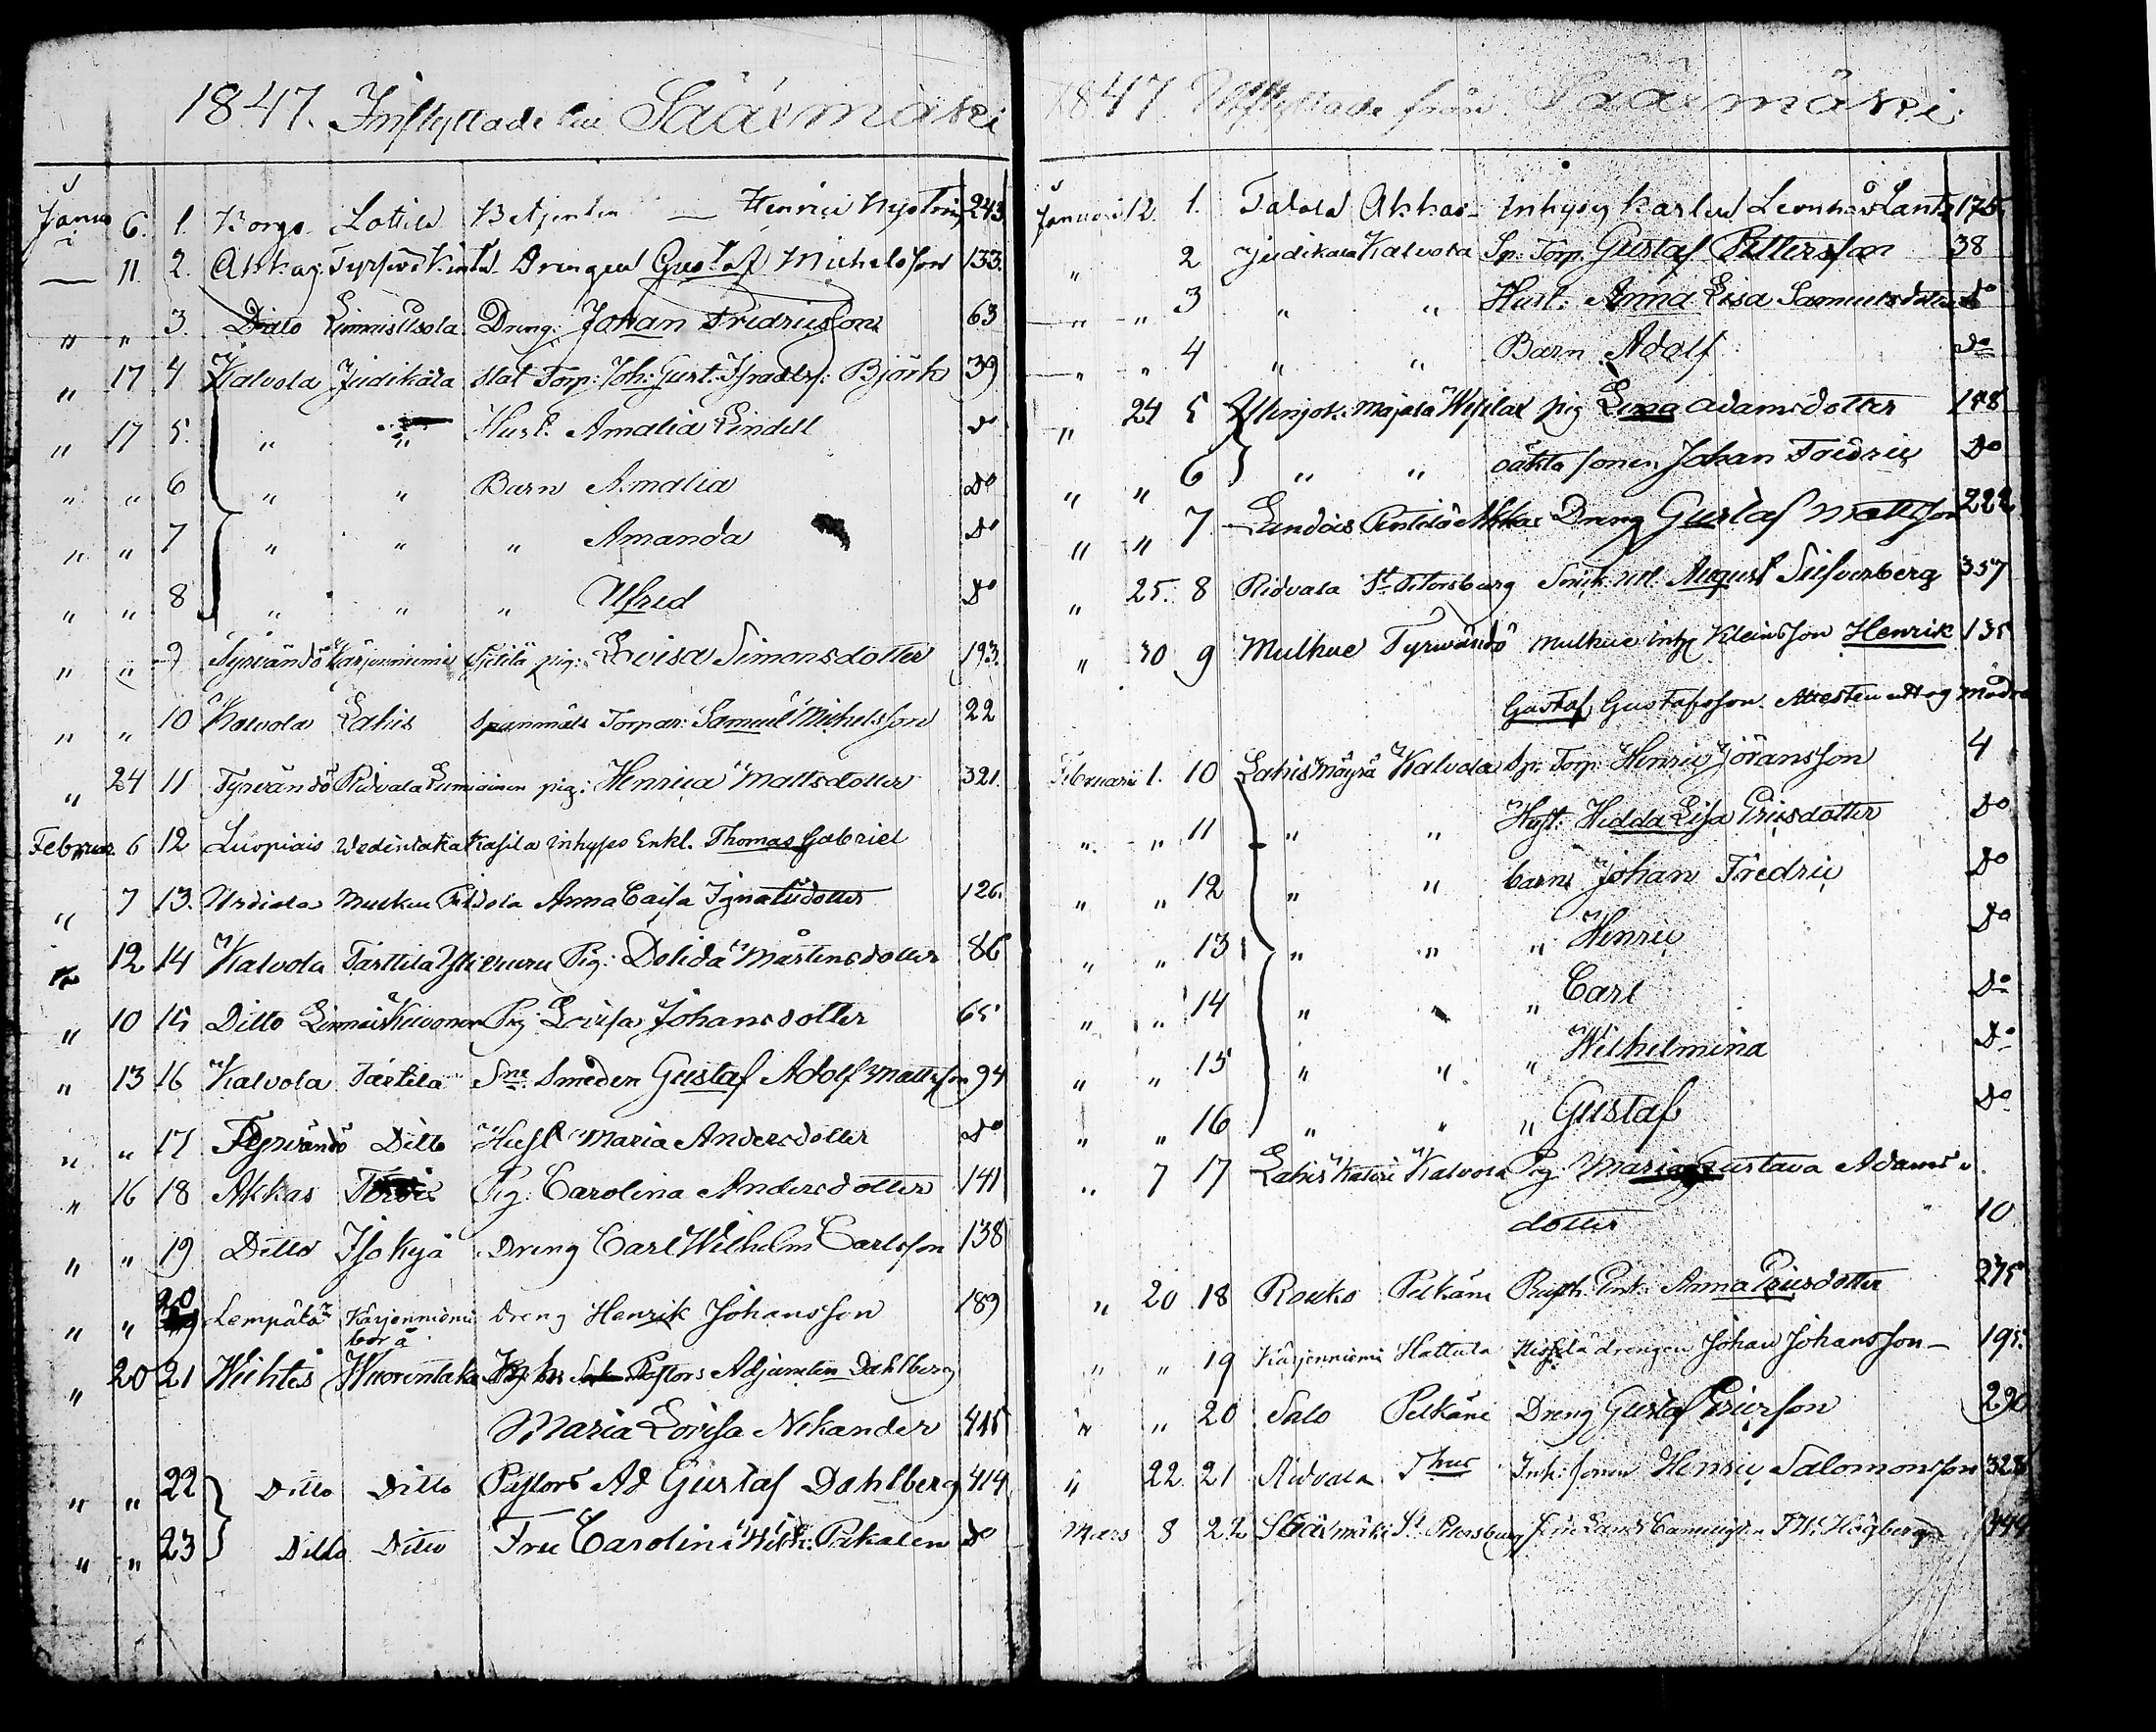 1847. Inflyttade till Sääxmäki
Janua 6. 1. Borgo Lotila Betjenten — Henric Nyström 243
— 11 2. Akkas Tyrsevä Drengen Gustaf Michelsson 133.
" " 3. Ditto Linnais USola Dreng: Johan Fridricsson 63
" 17 4 Kalvola Judikala Stat Torp: Joh: Gust: Israelss: Björk 39
" 17 5. " " Hust. Amalia Lindell do
" " 6 " " Barn Amalia do
" " 7 " " " Amanda do
" " 8 " " " Alfred do
" " 9 Tyrvändö Karjenniemi pig: Lovisa Simonsdotter 193.
" " 10 Kalvola Lahis Spanmåls Torpar: Samuel Michelsson 22
" 24 11 Tyrvändö Ridvala Lumiainen pig: Henrica Mattsdotter 321.
Februar. 6 12 Luopiais Wedentaka Kasila inhyses Enkl. Thomas Gabriel
" 7 13. Urdiala Mulkue Anna Caisa Ignatiidotter 126.
" 12 14 Kalvola Tarttila Pig: Dolida Mårtensdotter 86
" 10 15 Ditto Linnais Keuonen Pig: Lovisa Johansdotter 65
" 13 16 Kalvola Tartila Sne. Smeden Gustaf Adolf Mattsson 94
" " 17 Tyrvändö Ditto Hust Maria Andersdotter do
" 16 18 Akkas Pig: Carolina Andersdotter 141
" " 19 Ditto Iso Kyä Dreng Carl Wilhelm Carlsson 138
" " 20 Lempälä Karjenniemi Dreng Henrik Johansson 189
bor å
" 20 21 Wichtis Wuorentaka Pastors Adjuncten Dahlberg
Maria Lovisa Nikander 415
" " 22 Ditto Ditto Pastors Ad Gustaf Dahlberg 414
" " 23 Ditto Ditto Fru Carolina Wilh: Pakalen do
1847 Utflyttade från Sääxmäki
Januari 12. 1. Tabola Akkas Inhyses karlen Leonhard Lantz 175
" 2 Judikala Kalvola Sp: Torp. Gustaf Pettersson 38
" " 3 " " Hust: Anna Lisa Samuelsdotter do
" " 4 " " Barn Adolf do
" 24 5 Majala Wesilax pig Lena Adamsdotter 148
" " 6 " " oäkta sonen Johan Fredric Do
" " 7 Lundois Pentilä Akkas Dreng Gustaf Mattsson 222
" 25. 8 Ridvala St. Petersburg August Silfverberg 357
" 30 9 Mulkue Tyrwändö Mulkue inh: Kleinsson Henrik 135
Gustaf Gustafsson Attesten uttog modren
Februarii 1. 10 Lahis Mäyrä Kalvola Sp: Torp: Henric Jöransson 4
" " 11 " " Hust: Hedda Lisa Ericsdotter Do
" " 12 " " barn Johan Fredric Do
" " 13 " " " Henric Do
" " 14 " " " Carl Do
" " 15 " " " Wilhelmina Do
" " 16 " " " Gustaf Do
" 7 17 Lahis Katori Kalvola Pig Maria Gustava Adams
dotter 10
" 20 18 Rouko Pelkäne Enk: Anna Ericsdotter 275
" " 19 Karjenniemi Hattula drengen Johan Johansson — 195.
" " 20 Salo Pelkäne Dreng Gustaf Ericsson 290
" 22 21 Ridvala Thus Inh: sonen Henric Salomonsson 328
Mars 8 22 Sääxmäki St Petersburg F W: Högberg 444